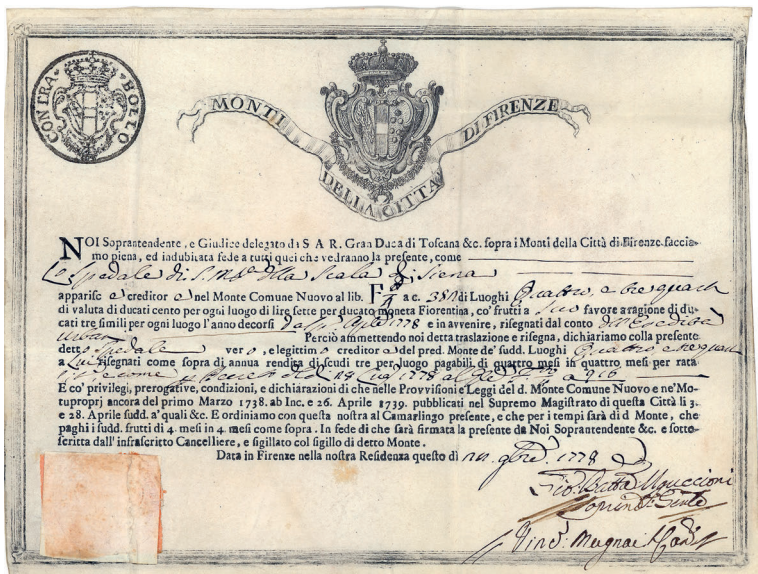 CONTRA BOLLO
MONTI DELLA CITTA DI FIRENZE
NOI Soprantendente, e Giudice delegato di S A R. Gran Duca di Toscana &c. sopra i Monti della Città di Firenze faccia-
mo piena, ed indubitata fede a tutti quei che vedranno la presente, come
Lo Spedale di S. Ma della Scala di Siena
apparisc e creditor e nel Monte Comune Nuovo al lib. F a c. di Luoghi Quattro, e tre quarti
di valuta di ducati cento per ogni luogo di lire sette per ducato moneta Fiorentina, co' frutti a suo favore a ragione di du-
cati tre simili per ogni luogo l'anno decorsi 1778 e in avvenire, risegnati dal conto
Perciò ammettendo noi detta traslazione e risegna, dichiariamo colla presente
detto Spedale vero, e legittimo creditor e del pred. Monte de' sudd. Luoghi Quattro e tre quarti
a Lui risegnati come sopra di annua rendita di scudi tre per luogo pagabili di quattro mesi in quattro mesi per rata
1778
E co' privilegj, prerogative, condizioni, e dichiarazioni di che nelle Provisioni e Leggi del d. Monte Comune Nuovo e ne' Mo-
tupropri ancora del primo Marzo 1738. ab Inc. e 26. Aprile 1739. pubblicati nel Supremo Magistrato di questa Città li 3.
e 28. Aprile sudd. a' quali &c. E ordiniamo con questa nostra al Camarlingo presente, e che per i tempi sarà di d Monte, che
paghi i sudd. frutti di 4. mesi in 4 mesi come sopra. In fede di che sarà firmata la presente da Noi Soprantendente &c. e sotto-
scritta dall' infrascritto Cancelliere, e sigillato col sigillo di detto Monte.
Data in Firenze nella nostra Residenza questo di 9bre 1778
Gio: Batta Uguccioni